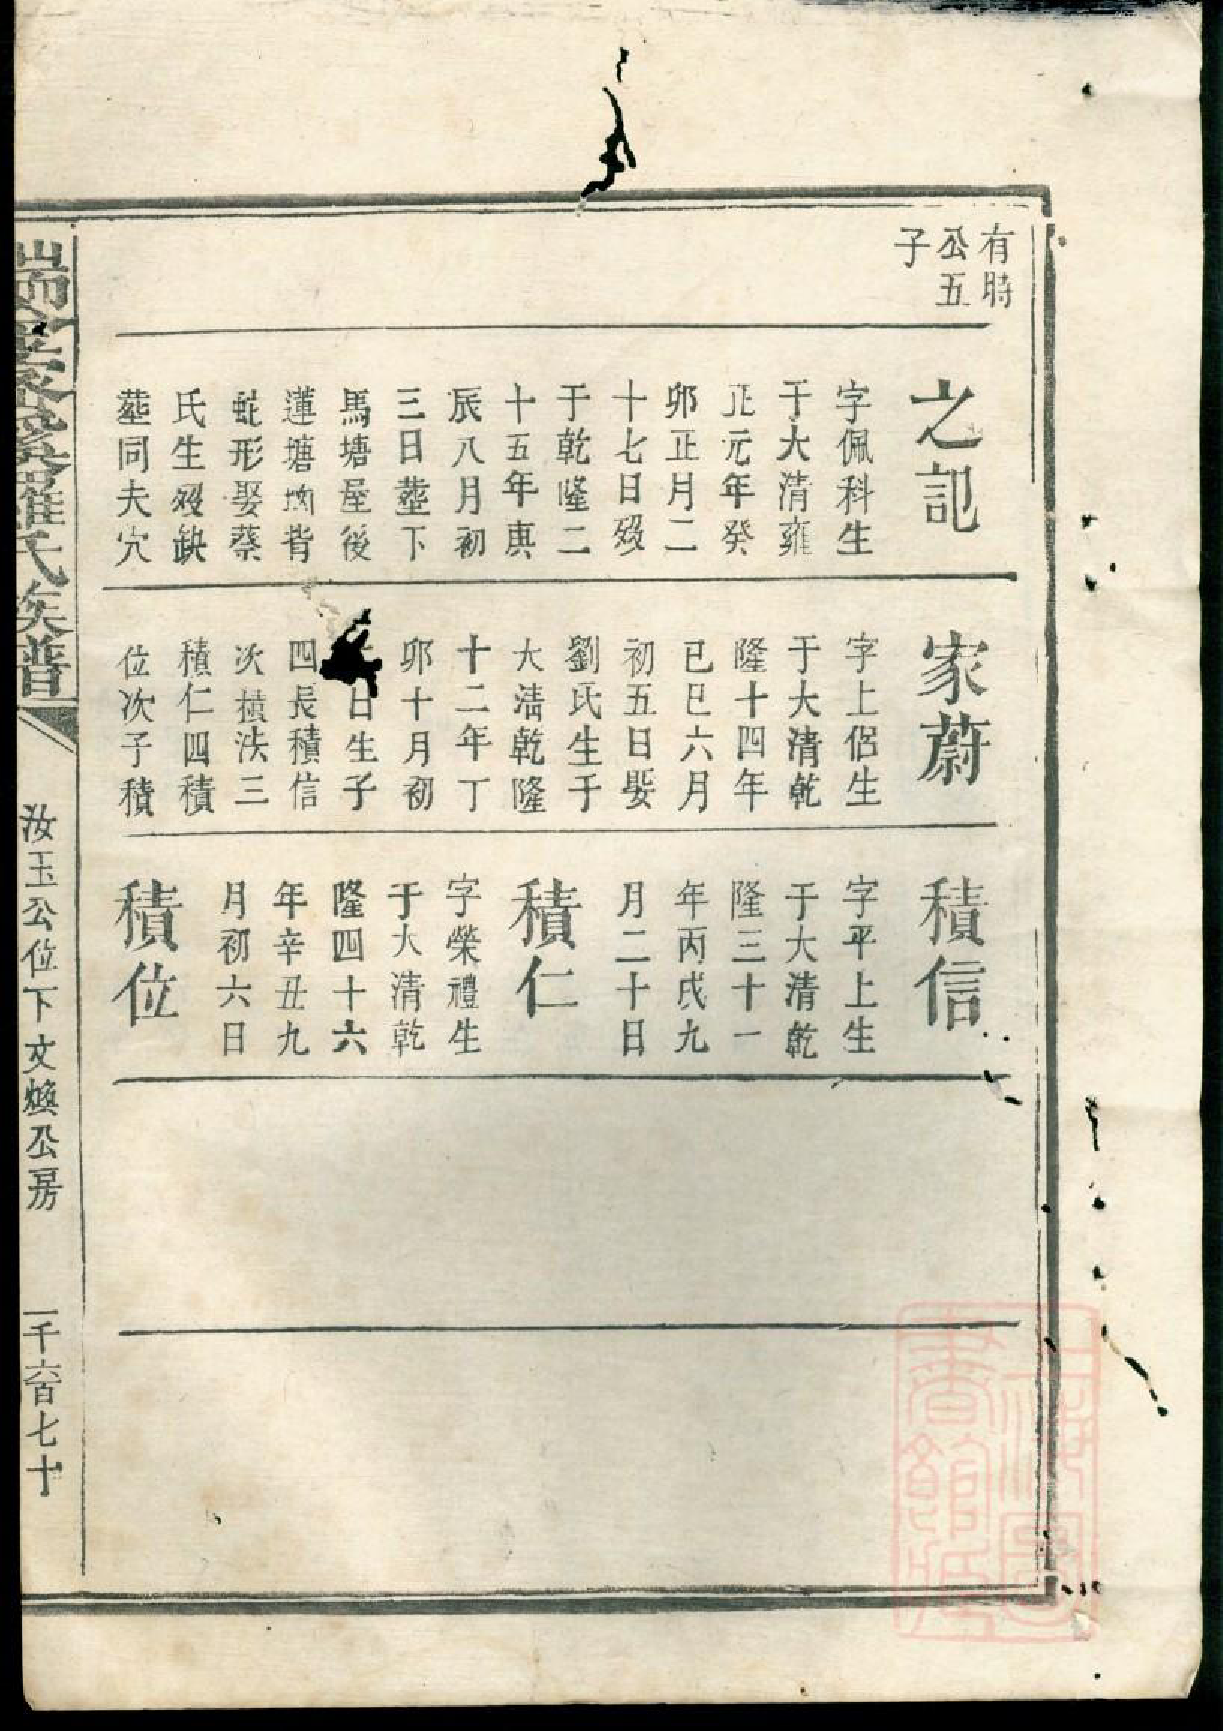 有時
公五
子
之記
字佩科生
于大清雍
正元年癸
卯正月二
十七日歿
于乾隆二
十五年庚
辰八月初
三日塟下
馬塘屋後
蓮塘坳背
蛇形娶蔡
氏生歿缺
塟同夫穴
家蔚
字上侣生
于大清乾
隆十四年
已巳六月
初五日娶
劉氏生于
大清乾隆
十二年丁
卯十月初
日生子
四長積信
次積法三
積仁四積
位次子積
積信
字平上生
于大清乾
隆三十一
年丙戌九
月二十日
積仁
字榮禮生
于大清乾
隆四十六
年辛丑九
月初六日
積位
羅氏族譜
汝玉公位下文煥公房
一千六百七十